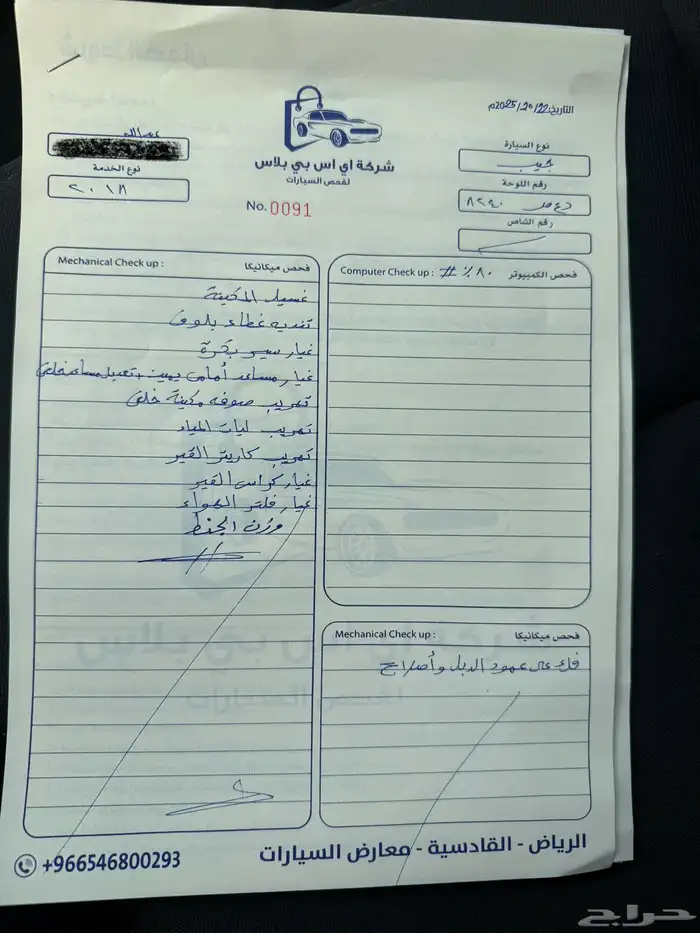 التاريخ: 22/10/2025م
شركة اي اس بي بلاس
لفحص السيارات
No. 0091
نوع السيارة
جيب
رقم اللوحة
٨٢٤٠
رقم الشاص
عبدالله
نوع الخدمة
٢٠١٨
Mechanical Check up : فحص ميكانيكا
غسيل المكينة
غطاء بلوف
غيار سير بكرة
غيار مساعد أمامي يمين + تعديل مساعد خلفي
تهريب صوفه مكينة خلفي
تهريب ليات المياه
تهريب كارتير القير
غيار كراسي القير
غيار فلتر الهواء
وزن الجنط
Computer Check up : # ٪ ٨٠ فحص الكمبيوتر
Mechanical Check up : فحص ميكانيكا
فك عمود الدبل وأصلاح
الرياض - القادسية - معارض السيارات
+966546800293
حراج